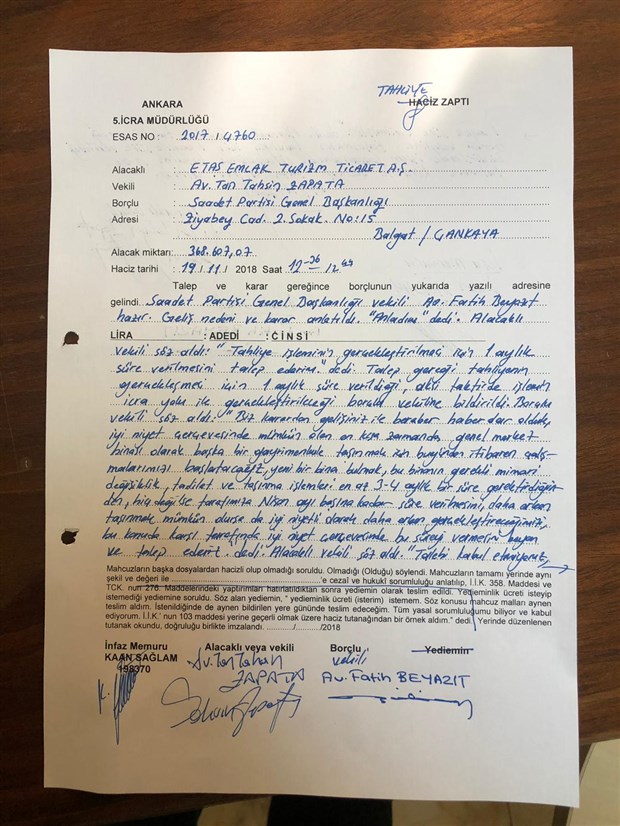 TAHLİYE
ANKARA HACİZ ZAPTI
5.İCRA MÜDÜRLÜĞÜ
ESAS NO : 2017 / 4760
Alacaklı : ETAŞ EMLAK TURİZM TİCARET A.Ş.
Vekili : Av. Tan Tahsin ZAPATA
Borçlu : Saadet Partisi Genel Başkanlığı
Adresi : Ziyabey Cad. 2. Sokak. No: 15
Balgat / ÇANKAYA
Alacak miktarı: 368.607,07
Haciz tarihi : 19 / 11 / 2018 Saat 12-36 12 44
Talep ve karar gereğince borçlunun yukarıda yazılı adresine
gelindi. Saadet Partisi Genel Başkanlığı vekili Av. Fatih Beyazıt
hazır. Geliş nedeni ve karar anlatıldı. "Anladım" dedi. Alacaklı
LİRA : ADEDİ : CİNSİ
vekili söz aldı: "Tahliye işleminin gerçekleştirilmesi için 1 aylık
süre verilmesini talep ederim." dedi. Talep gereği tahliyenin
gerçekleşmesi için 1 aylık süre verildiği, aksi taktirde işlemin
icra yolu ile gerçekleştirileceği borçlu vekiline bildirildi. Borçlu
vekili söz aldı: "Biz karardan gelişiniz ile beraber haberdar olduk,
iyi niyet çerçevesinde mümkün olan en kısa zamanda, genel merkez
binası olarak başka bir gayrimenkule taşınmak için bugünden itibaren çalış-
malarımızı başlatacağız, yeni bir bina bulmak, bu binanın gerekli mimari
değişiklik, tadilat ve taşınma işlemleri en az 3-4 aylık bir süre gerektirdiğin-
den, hiç değilse tarafımıza Nisan ayı başına kadar süre verilmesini, daha erken
taşınmak mümkün olursa da iyi niyetli olarak daha erken gerçekleştireceğimizi,
bu konuda karşı tarafında iyi niyet çerçevesinde bu süreyi vermesini beyan
ve talep ederiz. dedi. Alacaklı vekili söz aldı. "Talebi kabul etmiyoruz,
Mahcuzların başka dosyalardan hacizli olup olmadığı soruldu. Olmadığı (Olduğu) söylendi. Mahcuzların tamamı yerinde aynı
şekil ve değeri ile ..........'e cezai ve hukukî sorumluluğu anlatılıp, İ.İ.K. 358. Maddesi ve
TCK. nun 276. Maddelerindeki yaptırımları hatırlatıldıktan sonra yediemin olarak teslim edildi. Yedieminlik ücreti isteyip
istemediği yediemine soruldu. Söz alan yediemin, " yedieminlik ücreti (isterim) istemem. Söz konusu mahcuz malları aynen
teslim aldım. İstenildiğinde de aynen bildirilen yere gününde teslim edeceğim. Tüm yasal sorumluluğumu biliyor ve kabul
ediyorum. İ.İ.K.' nun 103 maddesi yerine geçerli olmak üzere haciz tutanağından bir örnek aldım." dedi. Yerinde düzenlenen
tutanak okundu, doğruluğu birlikte imzalandı. ........./........./2018
İnfaz Memuru Alacaklı veya vekili Borçlu Yediemin
KAAN SAĞLAM Av. Tan Tahsin vekili
198370 ZAPATA Av. Fatih BEYAZIT